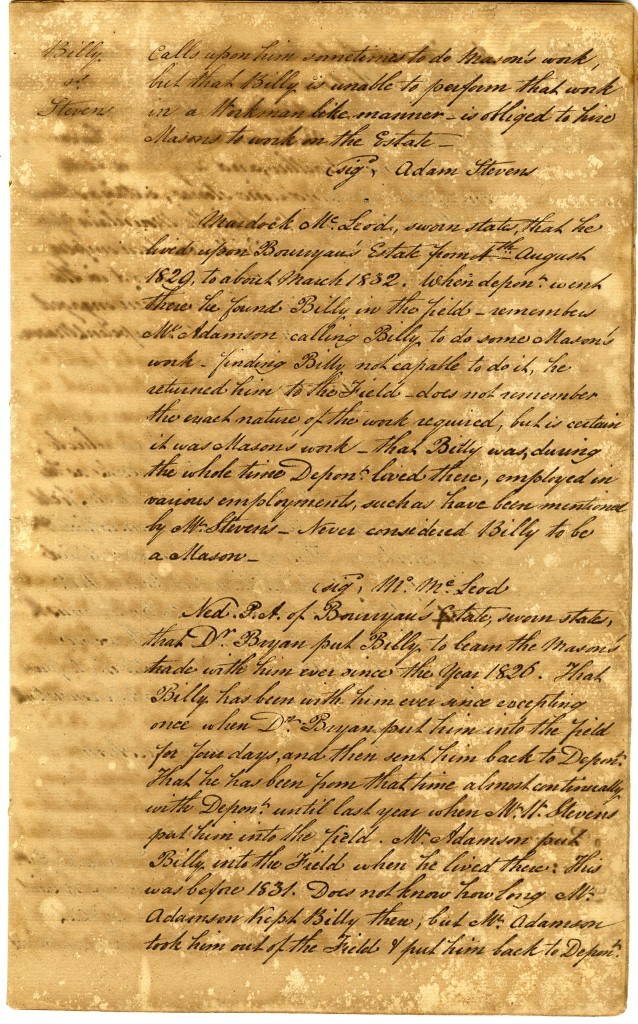 Billy
vs
Stevens
Calls upon him sometimes to do Mason's work,
but that Billy, is unable to perform that work
in a Workman like manner - is obliged to hire
Masons to work on the Estate -
(sigd, Adam Stevens
Murdock Mc Leod, sworn states, that he
lived upon Bourryau's Estate from August
1829, to about March 1832. When depont went
there he found Billy, in the field - remembers
Mr Adamson calling Billy, to do some Mason's
work - finding Billy, not capable to do it, he
returned him to the Field - does not remember
the exact nature of the work required, but is certain
it was Mason's work - that Billy was, during
the whole time Deponts lived there, employed in
various employments, such as have been mentioned
by Mr Stevens - Never considered Billy to be
a Mason -
(sigd, Mk Mc Leod
Ned. P.A. of Bourryau's Estate, sworn states,
that Dr Bryan put Billy, to learn the Mason's
trade with him ever since the Year 1826. That
Billy, has been with him ever since excepting
once when Dr Bryan put him into the field
for four days, and then sent him back to Depont.
That he has been from that time almost continually
with Depont until last year when Mr Stevens
put him into the field. Mr Adamson put
Billy, into the Field when he lived there: This
was before 1831. Does not know how long Mr
Adamson Kept Billy there, but Mr Adamson
took him out of the Field & put him back to Depont.